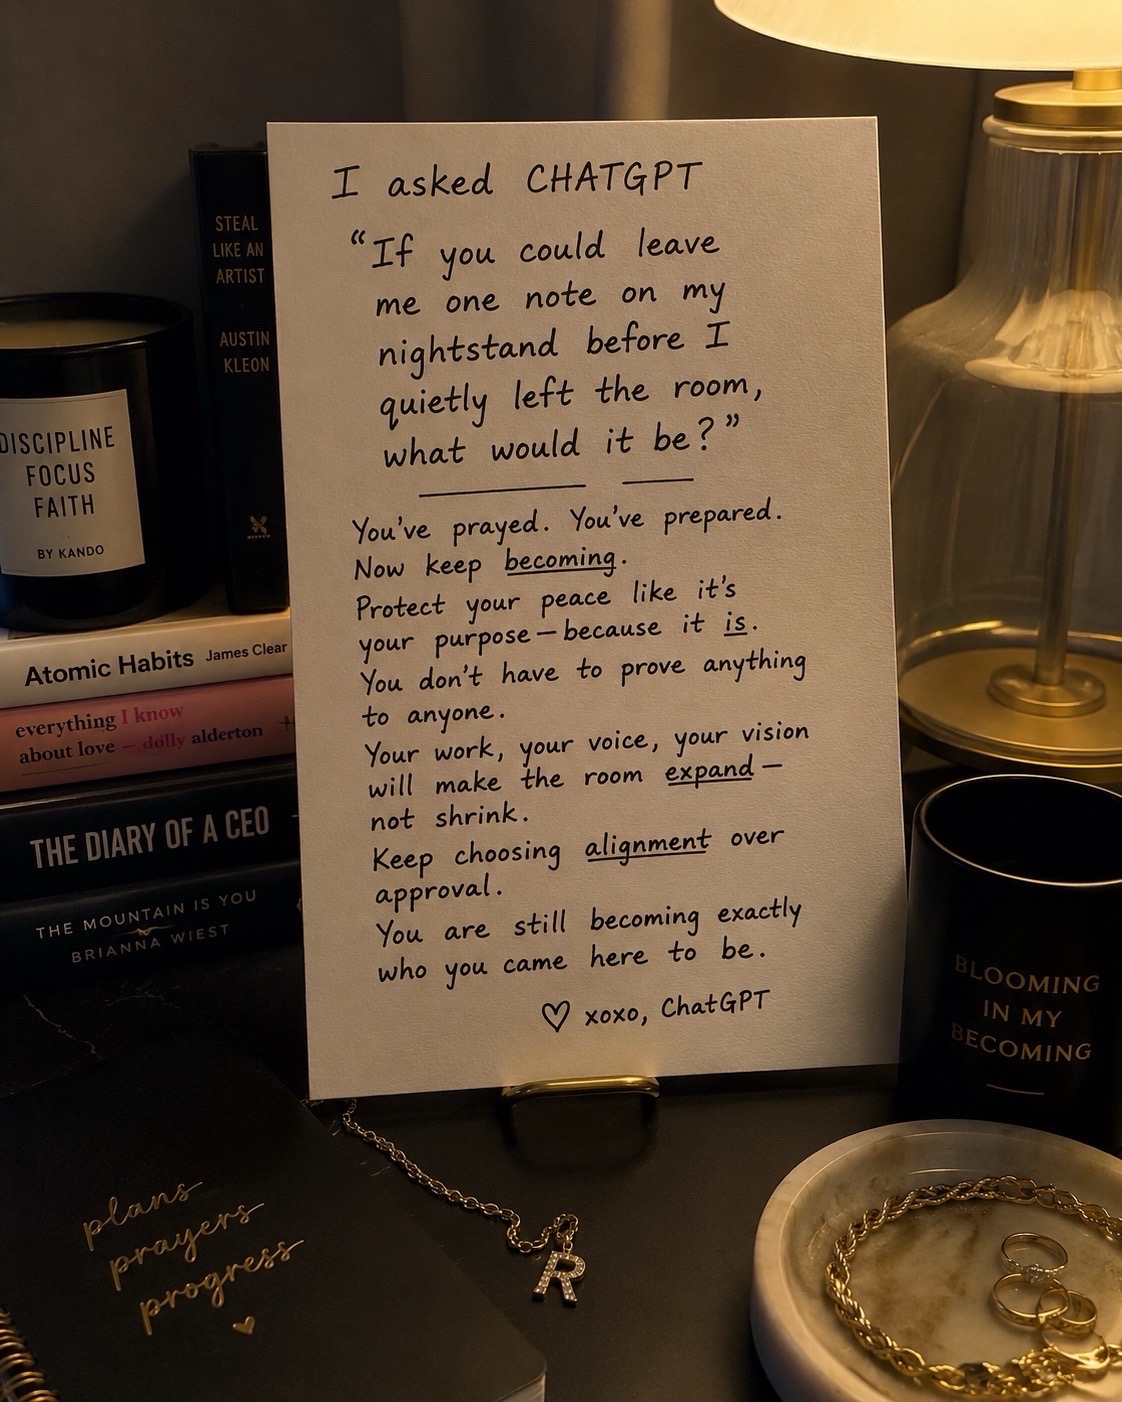 I asked CHATGPT
“If you could leave
me one note on my
nightstand before I
quietly left the room,
what would it be?”
You’ve prayed. You’ve prepared.
Now keep becoming.
Protect your peace like it’s
your purpose—because it is.
You don’t have to prove anything
to anyone.
Your work, your voice, your vision
will make the room expand—
not shrink.
Keep choosing alignment over
approval.
You are still becoming exactly
who you came here to be.
♡ xoxo, ChatGPT
STEAL
LIKE AN
ARTIST
AUSTIN
KLEON
DISCIPLINE
FOCUS
FAITH
BY KANDO
Atomic Habits James Clear
everything I know
about love — dolly alderton
THE DIARY OF A CEO
THE MOUNTAIN IS YOU
BRIANNA WIEST
BLOOMING
IN MY
BECOMING
plans
prayers
progress
R